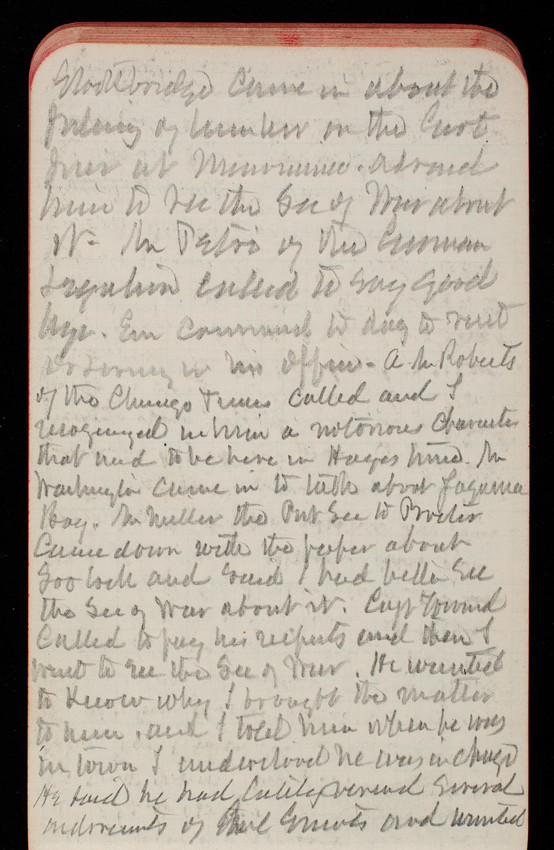 Stockbridge came in about the
of lumber on the East
at Menominee. Advised
him to see the Sec of War about
it. Mr of the German
Legation called to say good
bye. commenced to day to
in his office. A Mr Roberts
of the Chicago Times called and I
recognized in him a notorious character
that used to be here in Hayes time. Mr
Washington came in to talk about Laguna
Bay. Mr Miller the Prvt Sec to Proctor
Came down with the paper about
Soo lock and said I had better see
the Sec of War about it. Capt
Called to pay his respects and then I
went to see the Sec of War. He wanted
to know why I brought the matter
to him, and I told him when he was
in town I understood he was in charge
He said he had lately several
of and wanted